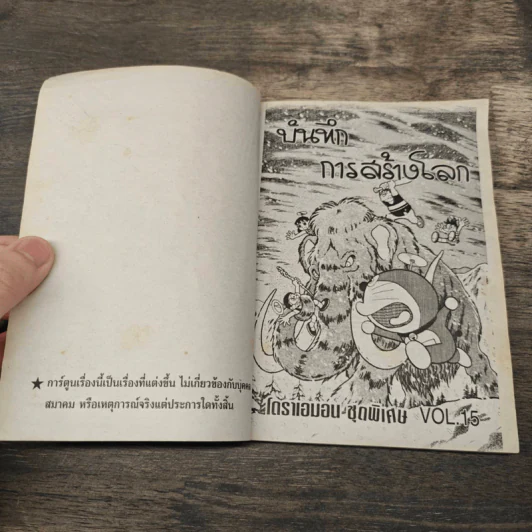 ★ การ์ตูนเรื่องนี้เป็นเรื่องที่แต่งขึ้น ไม่เกี่ยวข้องกับบุคคล
สมาคม หรือเหตุการณ์จริงแต่ประการใดทั้งสิ้น
บันทึก
การสร้างโลก
โดราเอมอน ชุดพิเศษ VOL.15